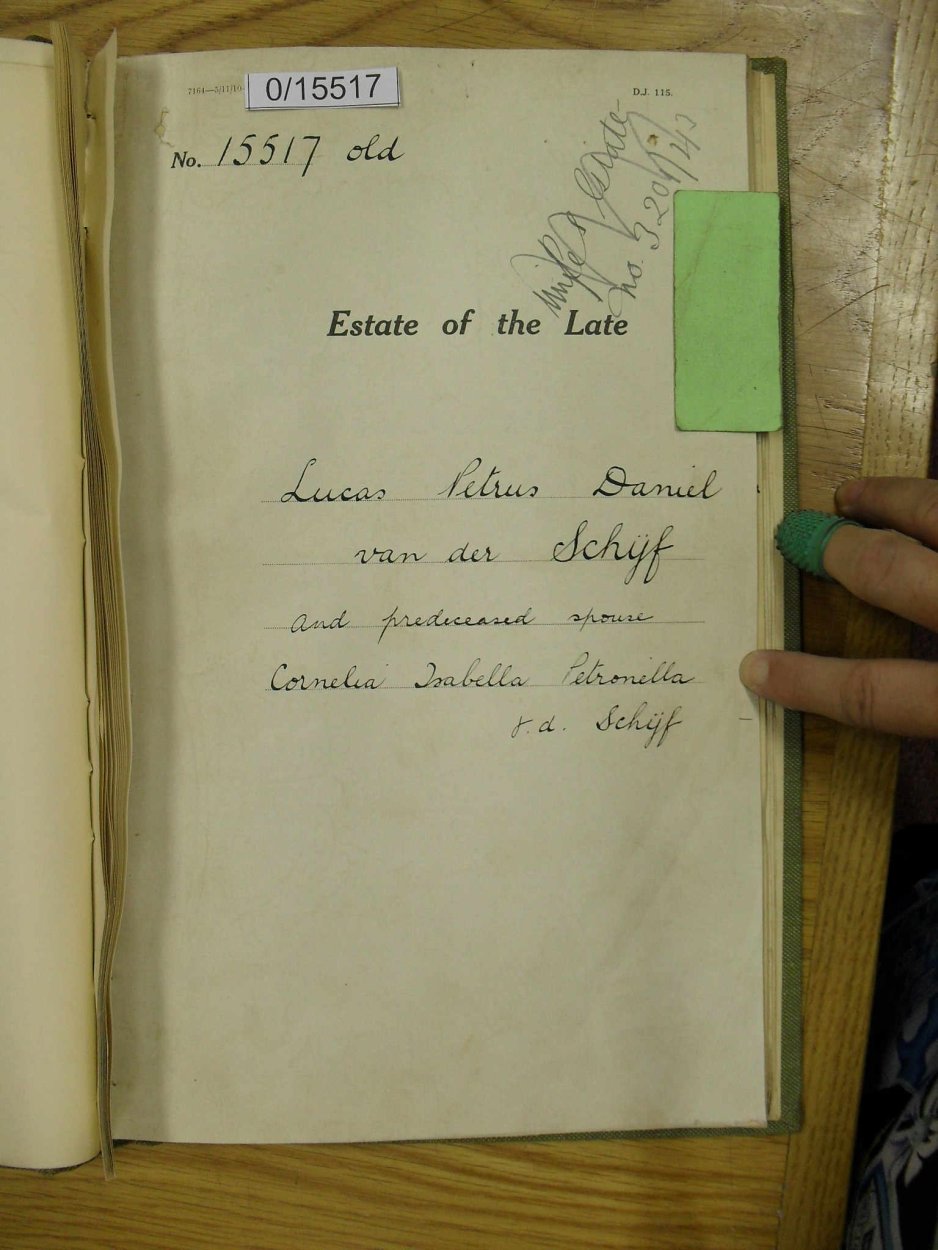 7164—5/11/10-
0/15517
D.J. 115.
No. 15517 old
Estate
no. 3201/43
Estate of the Late
Lucas Petrus Daniel
van der Schijf
and predeceased spouse
Cornelia Isabella Petronella
v.d. Schijf